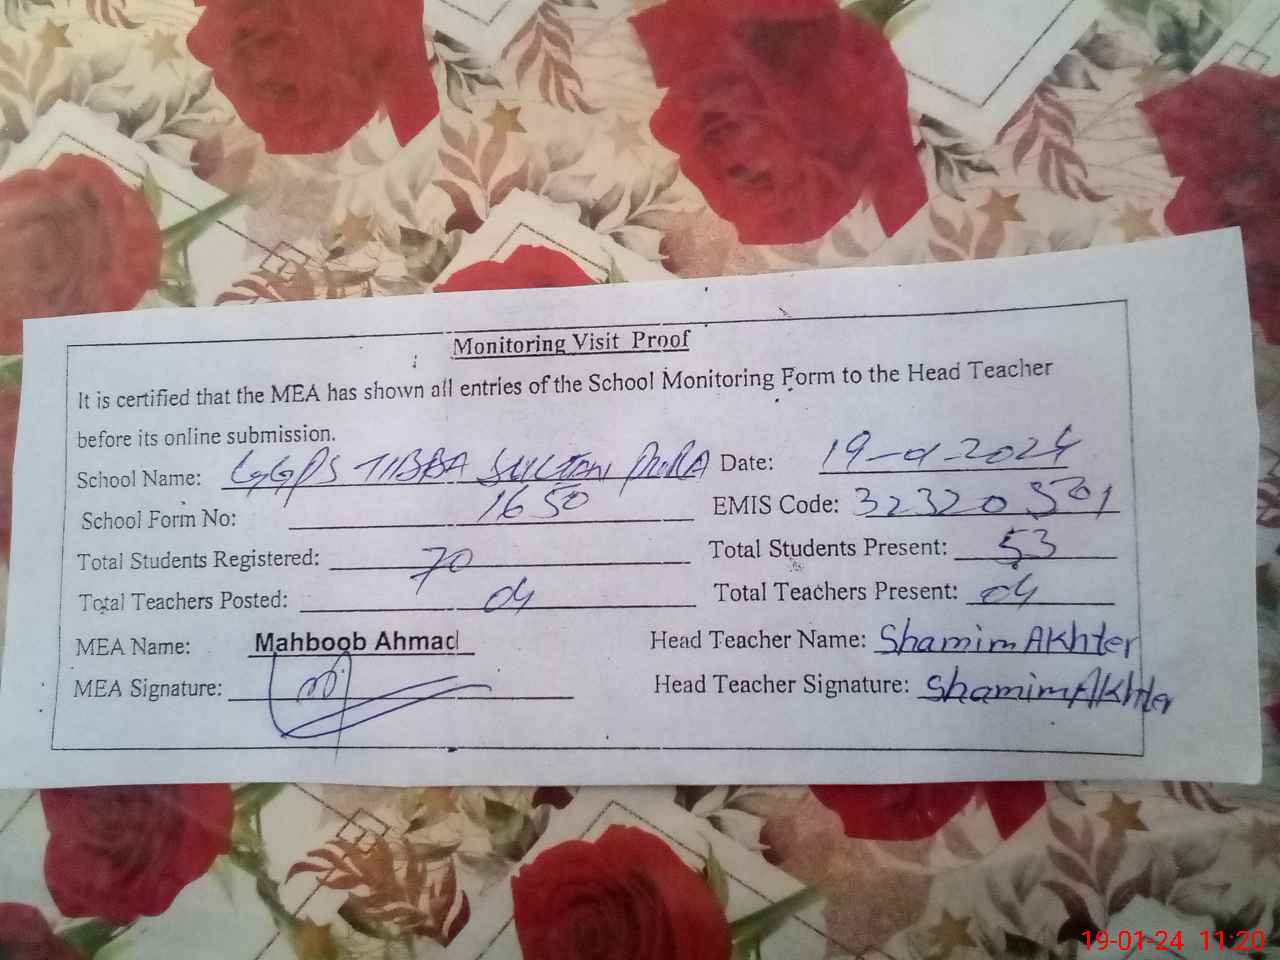 Monitoring Visit Proof
It is certified that the MEA has shown all entries of the School Monitoring Form to the Head Teacher
before its online submission.
School Name: GGPS TIBBA SULTAN PURA Date: 19-01-2024
School Form No: 1650 EMIS Code: 32320501
Total Students Registered: 70 Total Students Present: 53
Total Teachers Posted: 04 Total Teachers Present: 04
MEA Name: Mahboob Ahmad Head Teacher Name: Shamim Akhter
MEA Signature: Head Teacher Signature: Shamim Akhter
19-01-24 11:20